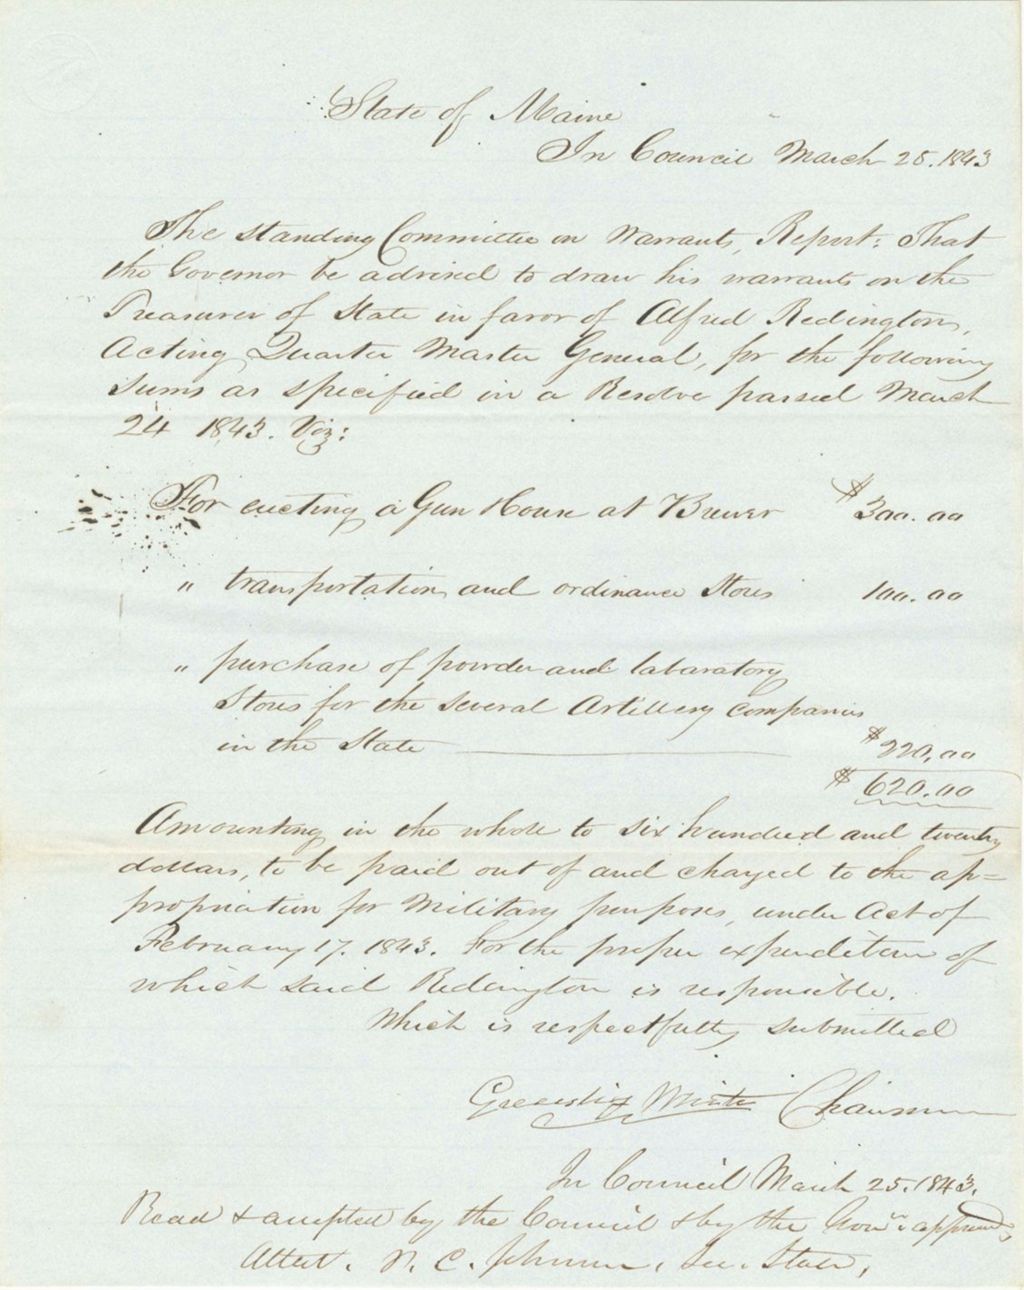 State of Maine
In Council March 25. 1843
The standing Committee on Warrants, Report: That
the Governor be advised to draw his warrants on the
Treasurer of State in favor of Alfred Redington,
Acting Quarter Master General, for the following
sums as specified in a Resolve passed March
24 1843. Viz:
For erecting a Gun House at Brewer $300.00
" transportation and ordinance Stores 100.00
" purchase of powder and labaratory
Stores for the several Artillery companies
in the State $220,00
$620.00
Amounting in the whole to six hundred and twenty
dollars, to be paid out of and charged to the ap=
propriation for Military purposes, under Act of
February 17. 1843. For the proper expenditure of
which said Redington is responsible.
Which is respectfully submitted
White Chairman
In Council March 25. 1843.
Read & accepted by the Council & by the Govr approved
Attest. P. C. Johnson, Sec. State,